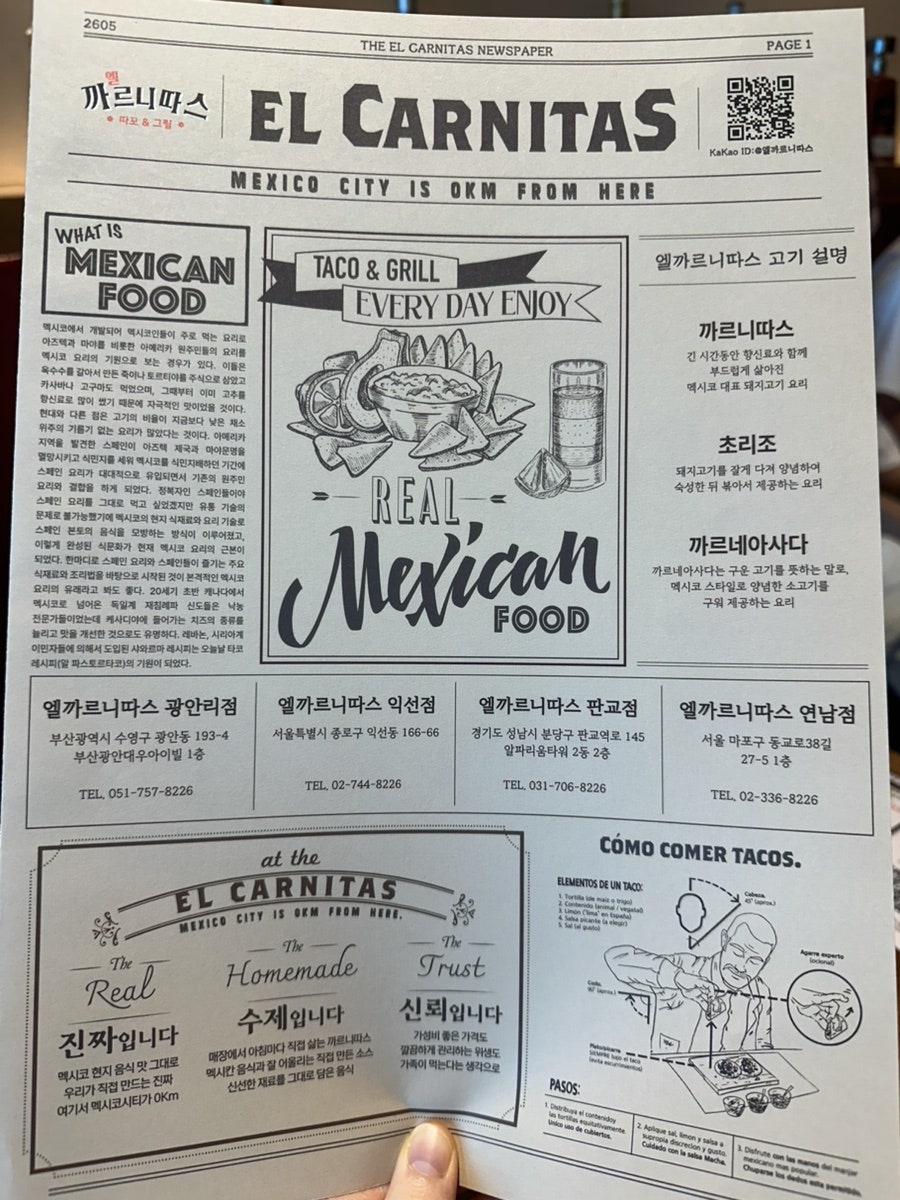 2605
THE EL CARNITAS NEWSPAPER
PAGE 1
엘
까르니따스
타꼬 & 그릴
EL CARNITAS
KaKao ID:@엘까르니따스
MEXICO CITY IS 0KM FROM HERE
WHAT IS
MEXICAN
FOOD
멕시코에서 개발되어 멕시코인들이 주로 먹는 요리로
아즈텍과 마야를 비롯한 아메리카 원주민들의 요리를
멕시코 요리의 기원으로 보는 경우가 있다. 이들은
옥수수를 갈아서 만든 죽이나 토르티야를 주식으로 삼았고
카사바나 고구마도 먹었으며, 그때부터 이미 고추를
향신료로 많이 썼기 때문에 자극적인 맛이었을 것이다.
현대와 다른 점은 고기의 비율이 지금보다 낮은 채소
위주의 기름기 없는 요리가 많았다는 것이다. 아메리카
지역을 발견한 스페인이 아즈텍 제국과 마야문명을
멸망시키고 식민지를 세워 멕시코를 식민지배하던 기간에
스페인 요리가 대대적으로 유입되면서 기존의 원주민
요리와 결합을 하게 되었다. 정복자인 스페인들이야
스페인 요리를 그대로 먹고 싶었겠지만 유통 기술의
문제로 불가능했기에 멕시코의 현지 식재료와 요리 기술로
스페인 본토의 음식을 모방하는 방식이 이루어졌고,
이렇게 완성된 식문화가 현재 멕시코 요리의 근본이
되었다. 한마디로 스페인 요리와 스페인들이 즐기는 주요
식재료와 조리법을 바탕으로 시작된 것이 본격적인 멕시코
요리의 유래라고 봐도 좋다. 20세기 초반 캐나다에서
멕시코로 넘어온 독일계 재침례파 신도들은 낙농
전문가들이었는데 케사디야에 들어가는 치즈의 종류를
늘리고 맛을 개선한 것으로도 유명하다. 레바논, 시리아계
이민자들에 의해서 도입된 샤와르마 레시피는 오늘날 타코
레시피(알 파스토르타코)의 기원이 되었다.
TACO & GRILL
EVERY DAY ENJOY
REAL
Mexican
FOOD
엘까르니따스 고기 설명
까르니따스
긴 시간동안 향신료와 함께
부드럽게 삶아진
멕시코 대표 돼지고기 요리
초리조
돼지고기를 잘게 다져 양념하여
숙성한 뒤 볶아서 제공하는 요리
까르네아사다
까르네아사다는 구운 고기를 뜻하는 말로,
멕시코 스타일로 양념한 소고기를
구워 제공하는 요리
엘까르니따스 광안리점
부산광역시 수영구 광안동 193-4
부산광안대우아이빌 1층
TEL. 051-757-8226
엘까르니따스 익선점
서울특별시 종로구 익선동 166-66
TEL. 02-744-8226
엘까르니따스 판교점
경기도 성남시 분당구 판교역로 145
알파리움타워 2동 2층
TEL. 031-706-8226
엘까르니따스 연남점
서울 마포구 동교로38길
27-5 1층
TEL. 02-336-8226
at the
EL CARNITAS
MEXICO CITY IS 0KM FROM HERE.
The
Real
진짜입니다
멕시코 현지 음식 맛 그대로
우리가 직접 만드는 진짜
여기서 멕시코시티가 0Km
The
Homemade
수제입니다
매장에서 아침마다 직접 삶는 까르니따스
멕시칸 음식과 잘 어울리는 직접 만든 소스
신선한 재료를 그대로 담은 음식
The
Trust
신뢰입니다
가성비 좋은 가격도
깔끔하게 관리하는 위생도
가족이 먹는다는 생각으로
CÓMO COMER TACOS.
ELEMENTOS DE UN TACO:
1. Tortilla (de maíz o trigo)
2. Contenido (animal / vegetal)
3. Limón ("lima" en España)
4. Salsa picante (a elegir)
5. Sal (al gusto)
Cabeza.
45° (aprox.)
Agarre experto
(ocional)
Codo.
90° (aprox.)
SIEMPRE bajo el taco
(evita escurrimientos)
PASOS:
1. Distribuya el contenidoy
las tortillas equitativamente.
Unico uso de cubiertos.
2. Aplique sal, limon y salsa a
supropia discrecion y gusto.
Cuidado con la salsa Macha.
3. Disfrute con las manos del manjar
mexicano mas popular.
Chuparse los dedos esta permitido.